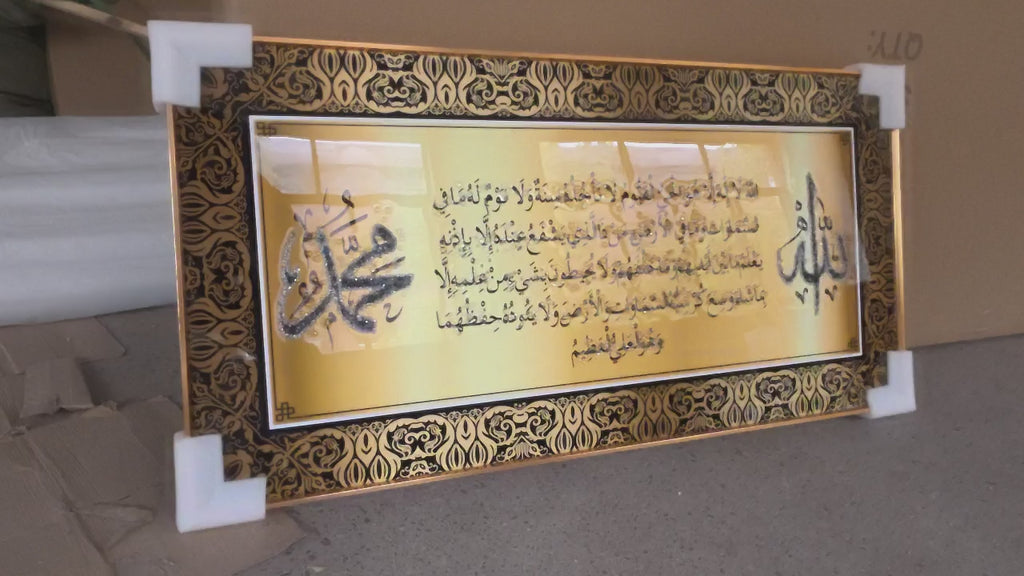 الله
الله لا إله إلا هو الحي القيوم لا تأخذه سنة ولا نوم له ما في
السموات وما في الأرض من ذا الذي يشفع عنده إلا بإذنه
يعلم ما بين أيديهم وما خلفهم ولا يحيطون بشيء من علمه إلا
بما شاء وسع كرسيه السموات والأرض ولا يئوده حفظهما
وهو العلي العظيم
محمد
QTY: